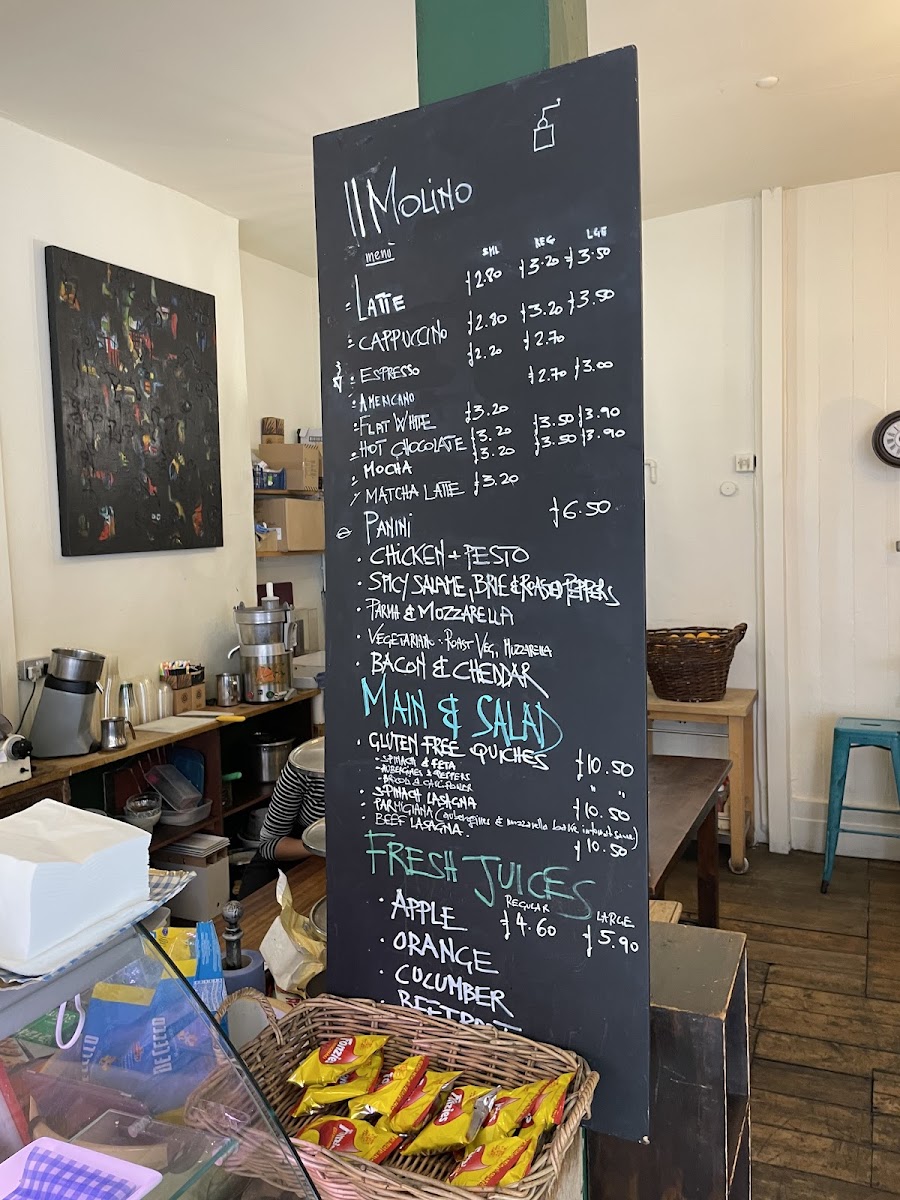 Il Molino
menù
SML REG LGE
LATTE £2.80 £3.20 £3.50
CAPPUCCINO £2.80 £3.20 £3.50
ESPRESSO £2.20 £2.70
AMERICANO £2.70 £3.00
FLAT WHITE £3.20
HOT CHOCOLATE £3.20 £3.50 £3.90
MOCHA £3.20 £3.50 £3.90
MATCHA LATTE £3.20
PANINI £6.50
CHICKEN + PESTO
SPICY SALAME, BRIE & ROASTED PEPPERS
PARMA & MOZZARELLA
VEGETARIANO: ROAST VEG, MOZZARELLA
BACON & CHEDDAR
MAIN & SALAD
GLUTEN FREE QUICHES £10.50
- SPINACH & FETA
- AUBERGINES & PEPPERS " "
SPINACH LASAGNA £10.50
PARMIGIANA (aubergines & mozzarella
BEEF LASAGNA. £10.50
FRESH JUICES
REGULAR LARGE
APPLE £4.60 £5.90
ORANGE
CUCUMBER
BEETROOT
DE CECCO
Fonzies